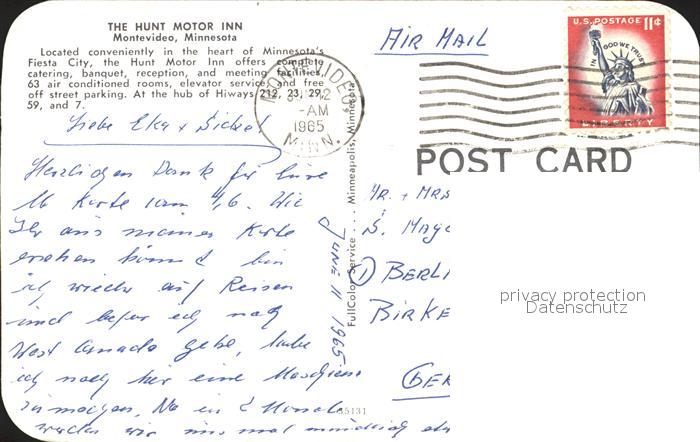 THE HUNT MOTOR INN
Montevideo, Minnesota
Located conveniently in the heart of Minnesota's
Fiesta City, the Hunt Motor Inn offers complete
catering, banquet, reception, and meeting facilities,
63 air conditioned rooms, elevator service and free
off street parking. At the hub of Hiways 212, 23, 29,
59, and 7.
AIR MAIL
U.S. POSTAGE 11¢
IN GOD WE TRUST
LIBERTY
MONTEVIDEO,
-AM
1965
MINN.
POST CARD
Liebe Eka +
Herzlichen Dank für Eure
lb Karte vom 4/6. Wie
Ihr aus meiner Karte
ersehen könnt bin
ich wieder auf Reisen
und bevor ich nach
West Canada gehe, habe
ich noch hier eine Maschine
zu machen. Na in 2 Monate
werden wir uns mal mündlich
JUNE 11 1965
FullColor Service . . . Minneapolis, Minnesota
35131
MR. + MRS
S. Mayc
① BERLI
BIRKE
GER
privacy protection
Datenschutz